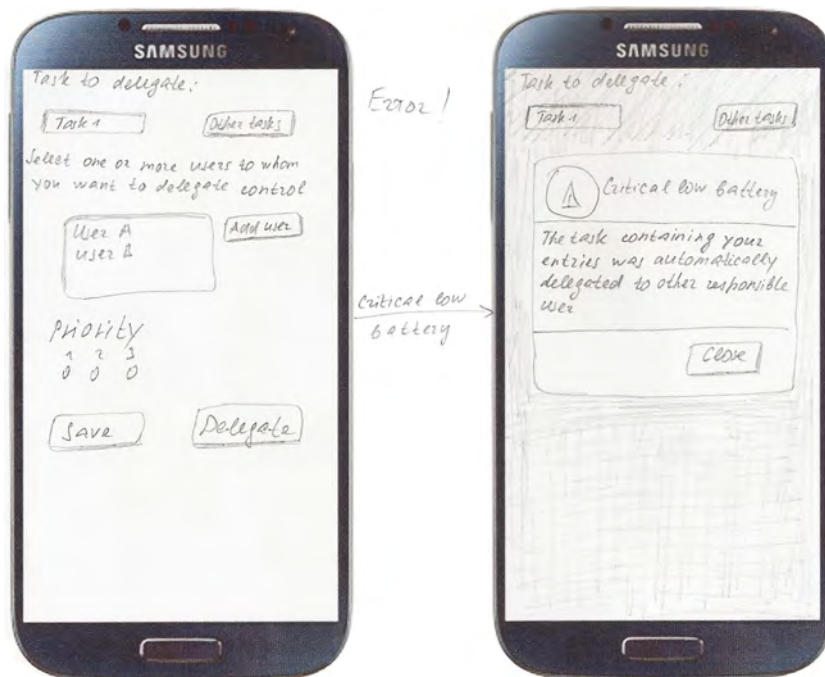 SAMSUNG
Task to delegate:
Task 1
Other tasks
Select one or more users to whom
you want to delegate control
User A
user B
Add user
Priority
1 2 3
0 0 0
Save
Delegate
Error!
Critical low
battery
SAMSUNG
Task to delegate:
Task 1
Other tasks
Critical low battery
The task containing your
entries was automatically
delegated to other responsible
user
Close